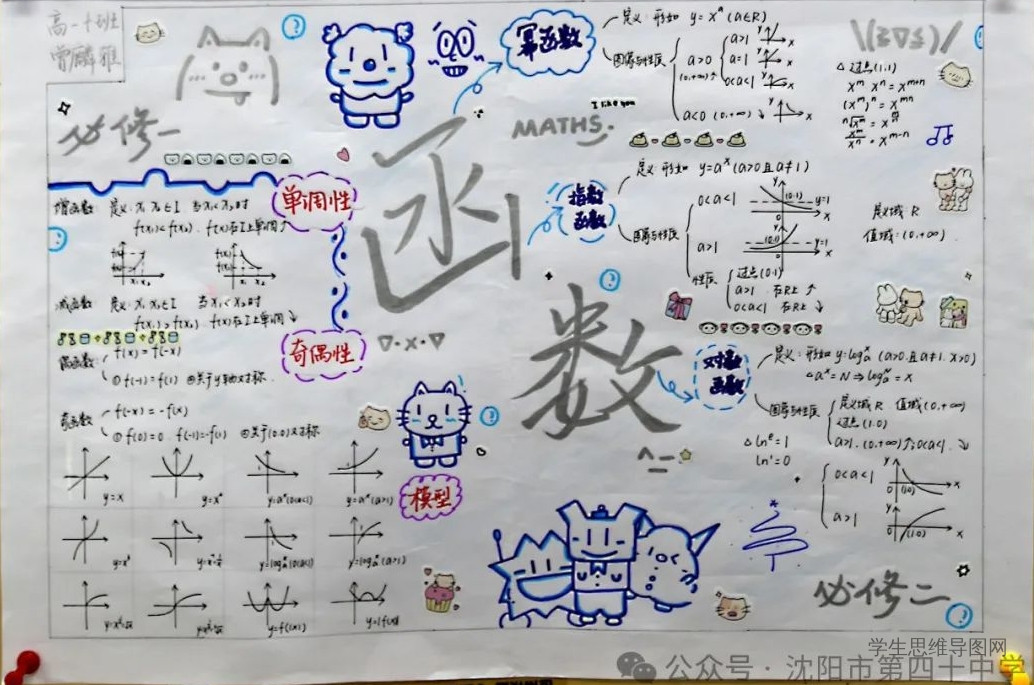 高一十班
曾麟雅
必修一
函
数
MATHS.
I like you
单调性
增函数 定义: x₁ x₂∈I 当x₁<x₂时
f(x₁)<f(x₂). f(x)在I上单调↑
减函数 定义: x₁ x₂∈I 当x₁<x₂时
f(x₁)>f(x₂) f(x)在I上单调↓
奇偶性
偶函数 f(x)=f(-x)
①f(-1)=f(1) ②关于y轴对称.
奇函数 f(-x)=-f(x)
①f(0)=0 f(-1)=-f(1) ②关于(0.0)对称
模型
y=x
y=x²
y=aˣ(0<a<1)
y=aˣ(a>1)
y=x³
y=logₐˣ(0<a<1)
y=logₐˣ(a>1)
y=f(|x|)
y=|f(x)|
幂函数
定义: 形如 y=xᵅ (α∈R)
图像与性质
a>0
(0,+∞)↑
a>1
a=1
0<a<1
a<0 (0,+∞)↓
△过点(1,1)
xᵐ xⁿ=xᵐ⁺ⁿ
(xᵐ)ⁿ=xᵐⁿ
指数
函数
定义: 形如 y=aˣ (a>0且a≠1)
图像与性质
0<a<1
(0,1)
y=1
a>1
(0,1)
y=1
性质
过点(0,1)
a>1 在R上↑
0<a<1 在R上↓
定义域: R
值域: (0,+∞)
对数
函数
定义: 形如 y=logₐˣ (a>0.且a≠1. x>0)
△aˣ=N⇒logₐᴺ=x
图像与性质
定义域 R 值域 (0,+∞)
过点(1.0)
a>1. (0,+∞)↑ 0<a<1. ↓
△lnᵉ=1
ln¹=0
0<a<1
(1,0)
a>1
(1,0)
必修二
学生思维导图网
公众号·沈阳市第四十中学